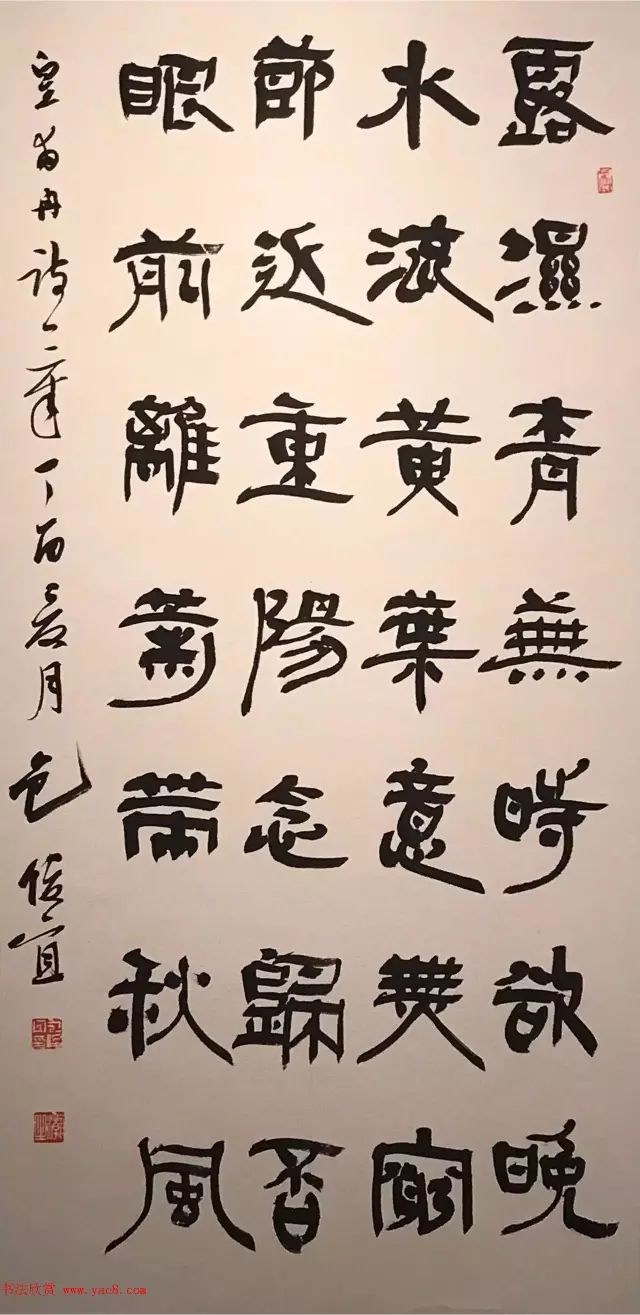 露濕青蕪時欲晚
水流黄葉意無窮
節近重陽念歸否
眼前離菊帶秋風
皇甫冉詩一章丁酉夏月包俊宜
书法欣赏 www.yac8.com